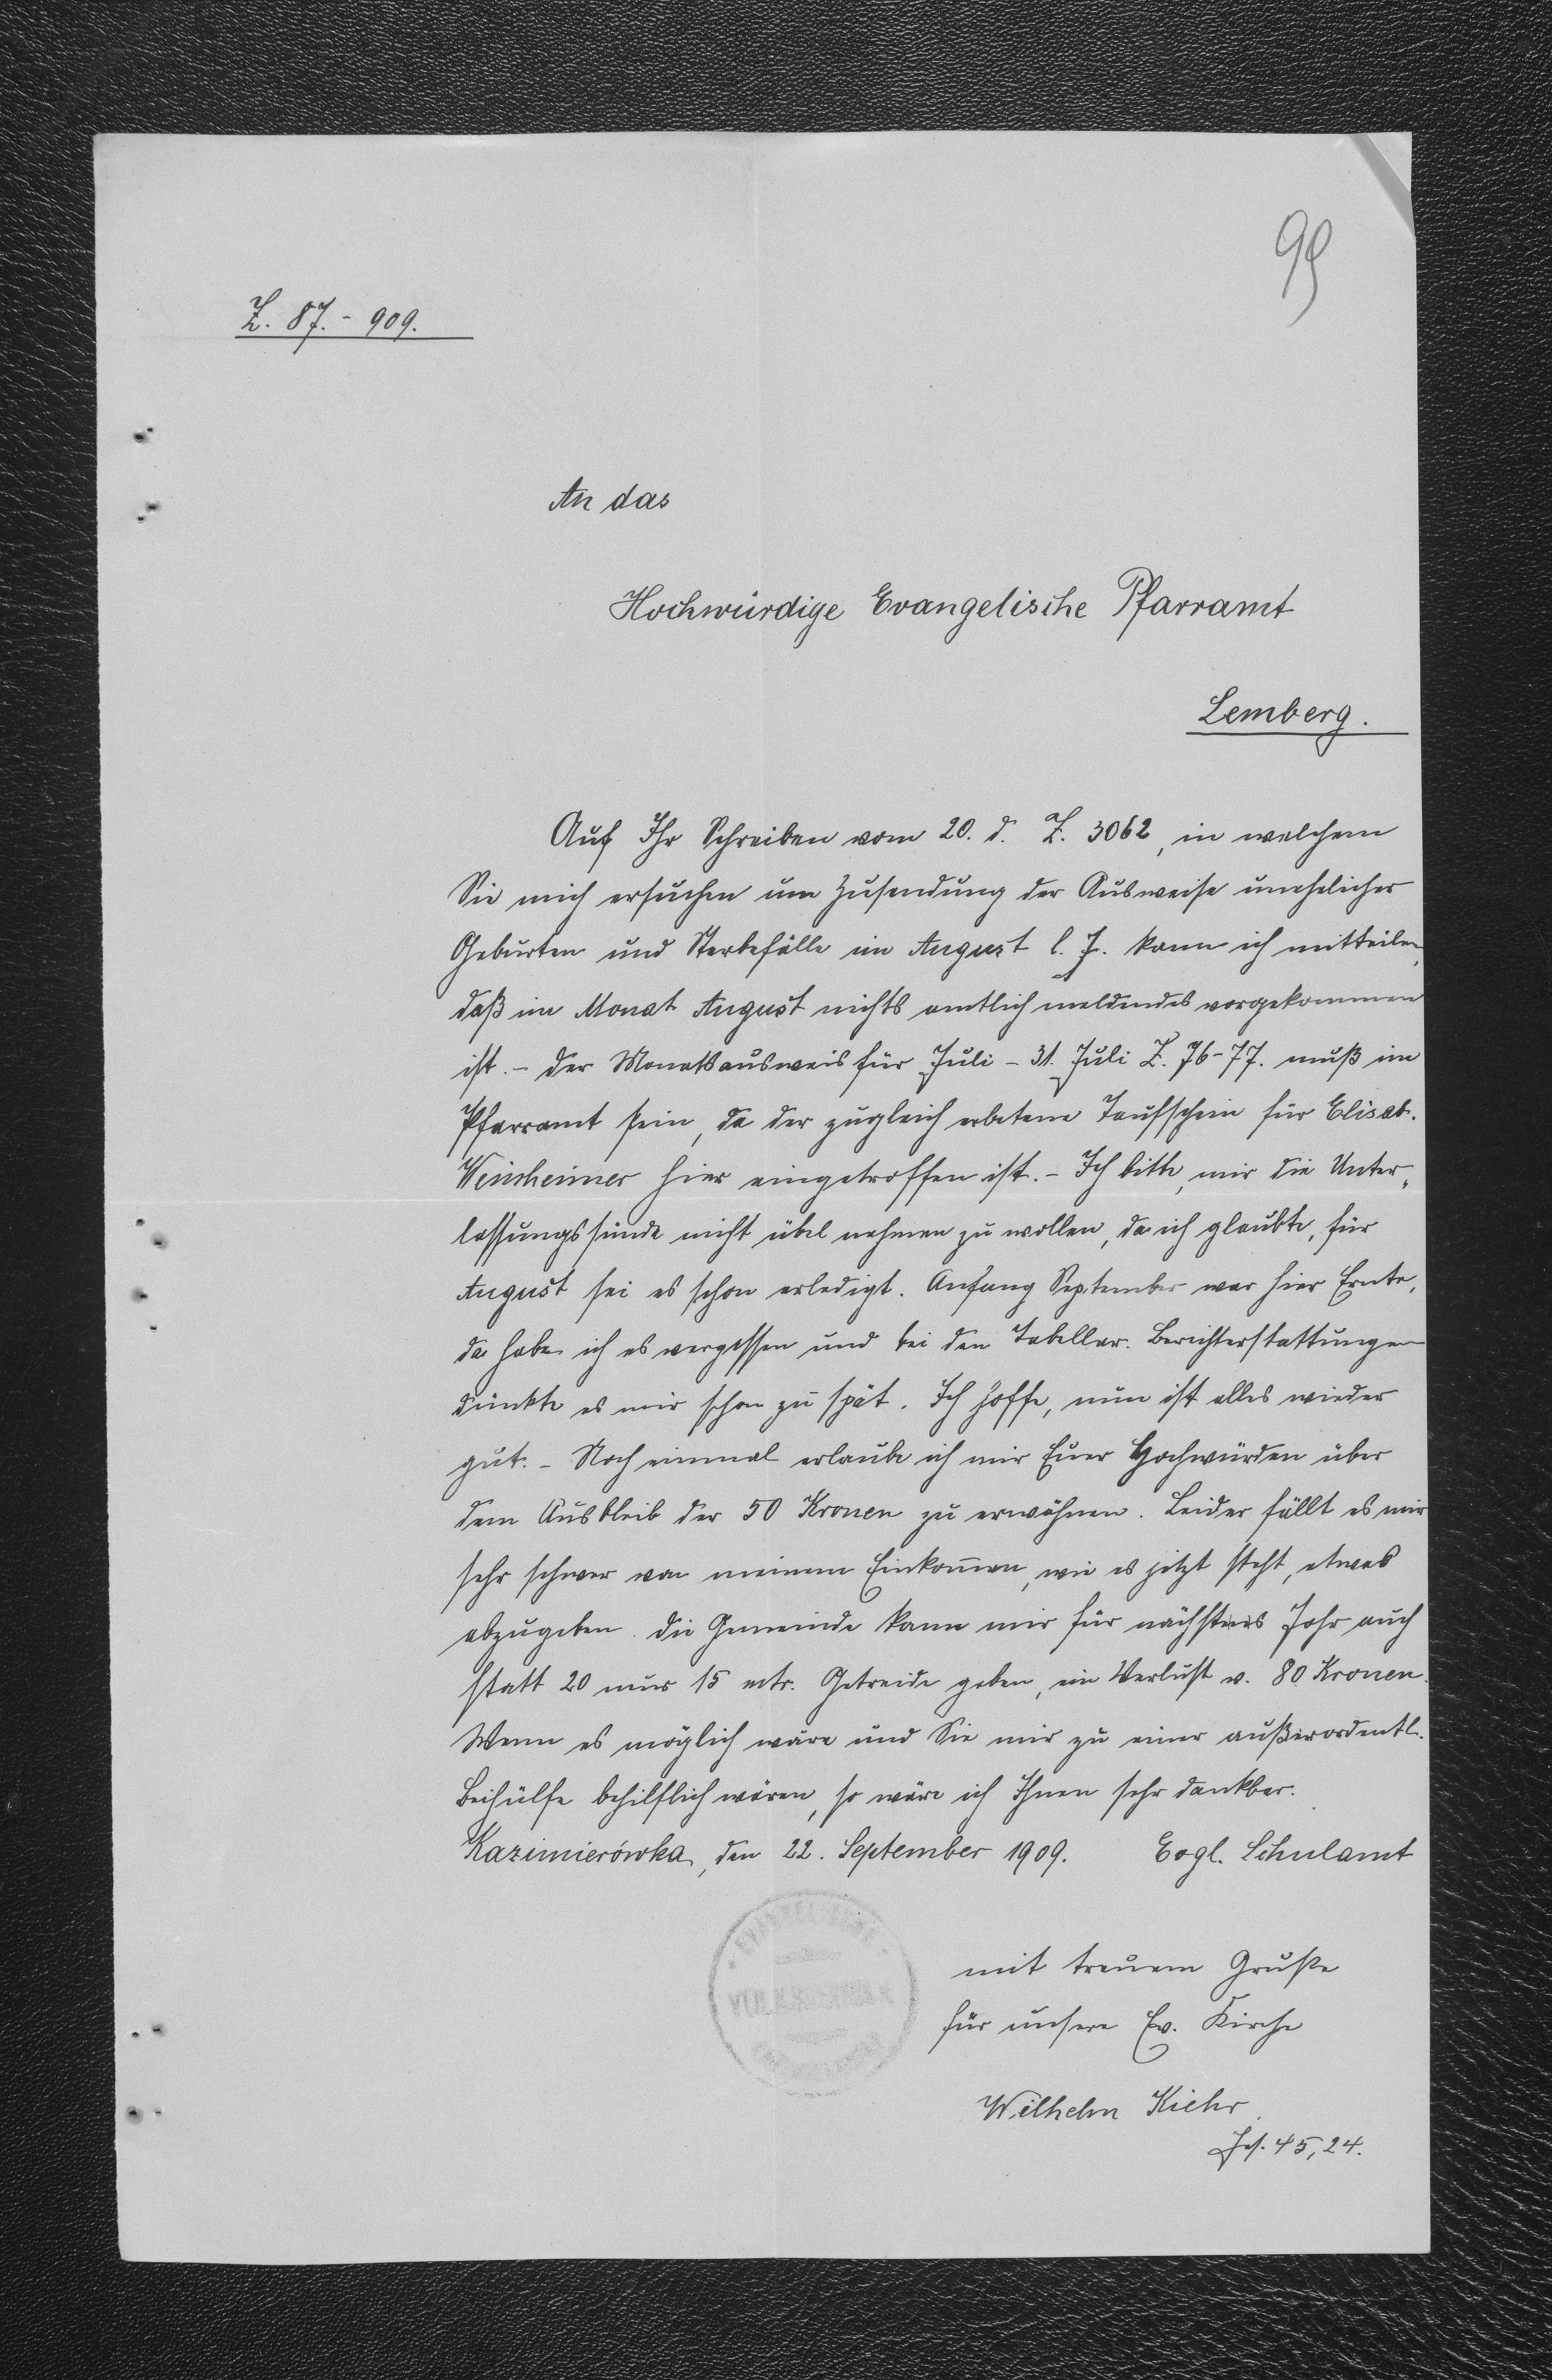 99
Z. 87. - 909.
An das
Hochwürdige Evangelische Pfarramt
Lemberg.
Auf Ihr Schreiben vom 20. d. Z. 3062, in welchem
Sie mich ersuchen um Zusendung der Ausweise unehelicher
Geburten und Sterbefälle im August l. J. kann ich mitteilen,
daß im Monat August nichts amtlich meldendes vorgekommen
ist. - Der Monatsausweis für Juli - 31. Juli Z. 76-77. muß im
Pfarramt sein, da der zugleich erbetene Taufschein für Elisab.
Weinheimer hier eingetroffen ist. - Ich bitte, mir die Unter„
lassungssünde nicht übel nehmen zu wollen, da ich glaubte, für
August sei es schon erledigt. Anfang September war hier Ernte,
da habe ich es vergessen und bei den Tabellar. Berichterstattungen
dünkte es mir schon zu spät. Ich hoffe, nun ist alles wieder
gut. - Noch einmal erlaube ich mir Euer Hochwürden über
dem Ausbleib der 50 Kronen zu erwähnen. Leider fällt es mir
sehr schwer von meinem Einkom̅en, wie es jetzt steht, etwas
abzugeben. Die Gemeinde kann mir für nächstes Jahr auch
statt 20 nur 15 mtr. Getreide geben, ein Verlust v. 80 Kronen.
Wenn es möglich wäre und Sie mir zu einer außerordentl.
Beihülfe behilflich wären, so wäre ich Ihnen sehr dankbar.
Kazimierówka, den 22. September 1909. Evgl. Schulamt
mit treuem Gruße
für unsere Ev. Kirche
Wilhelm Kiehr
Jes. 45, 24.